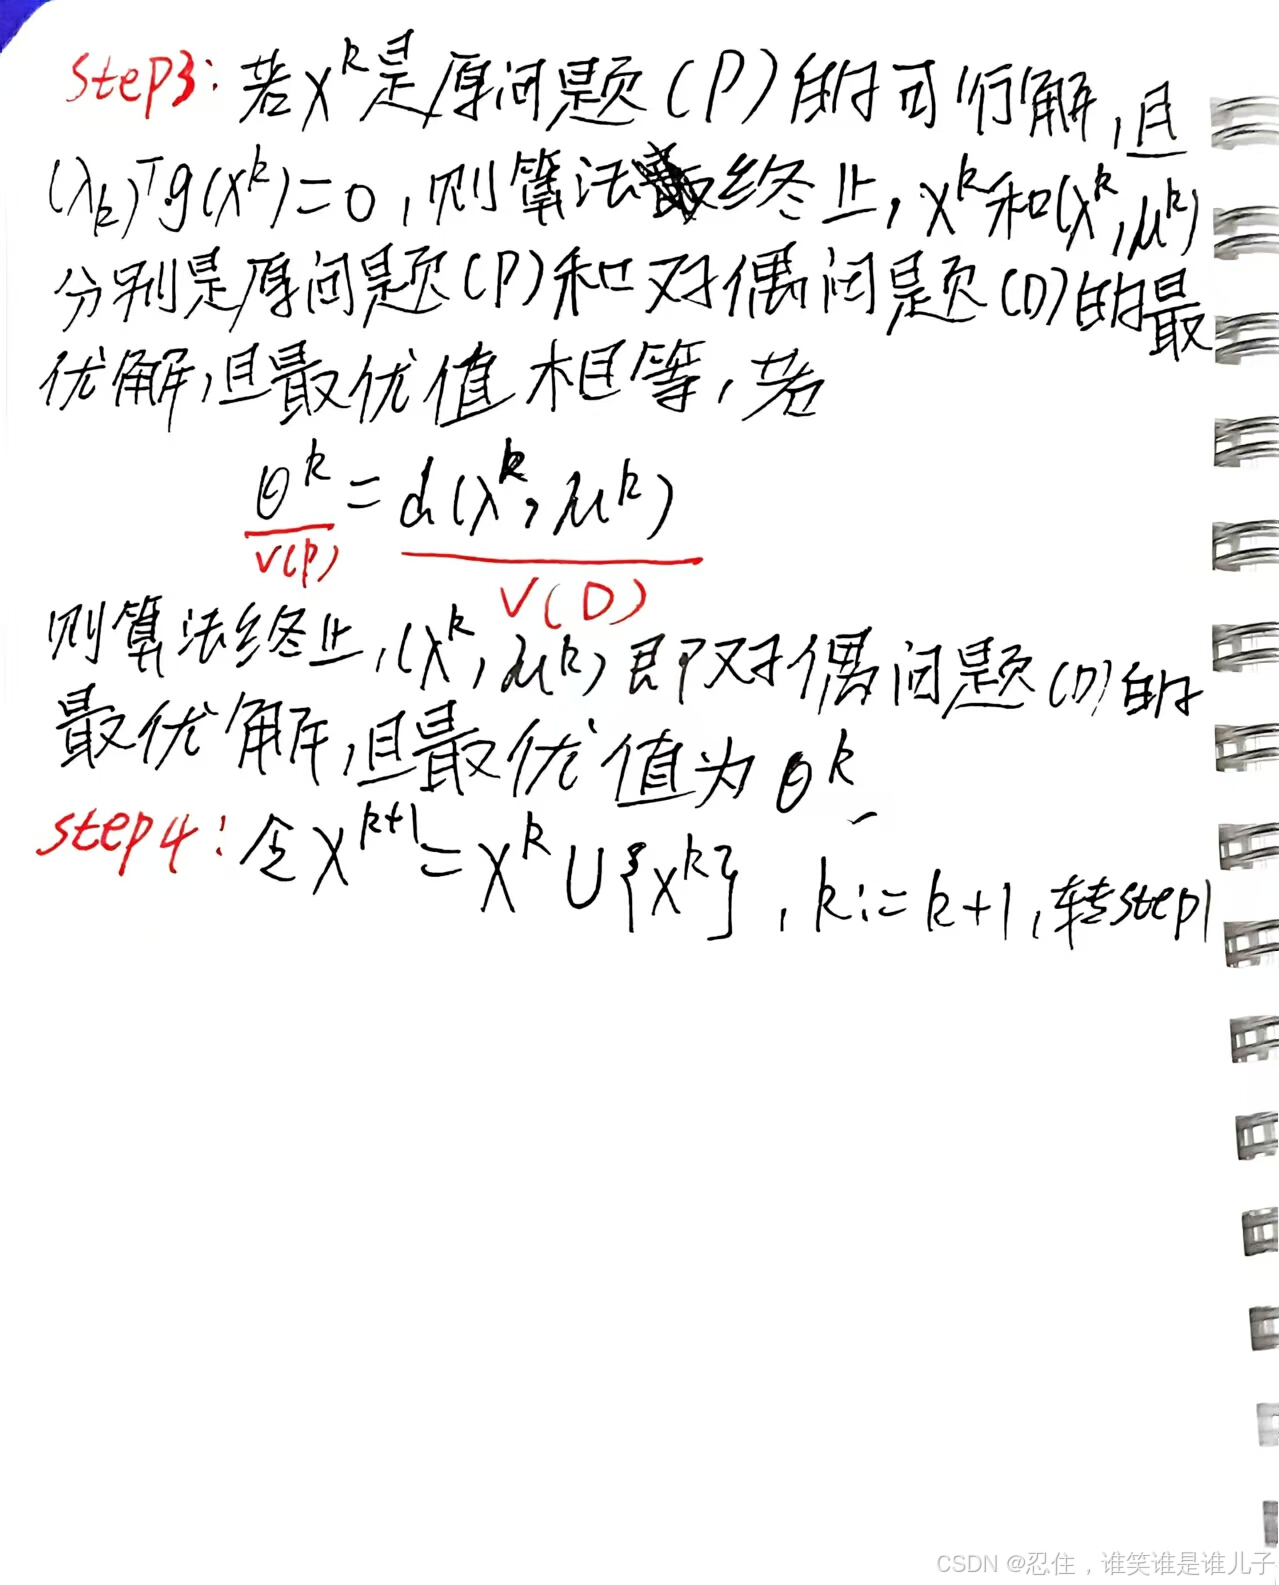 step3: 若x^k是原问题(P)的可行解,且
(λ_k)^T g(x^k)=0,则算法终止,x^k和(λ^k,μ^k)
分别是原问题(P)和对偶问题(D)的最
优解,且最优值相等,若
θ^k = d(λ^k, μ^k)
V(P)
V(D)
则算法终止,(λ^k, μ^k)即对偶问题(D)的
最优解,且最优值为θ^k
step4: 令X^{k+1}=X^k∪{x^k}, k:=k+1,转step1
CSDN @忍住,谁笑谁是谁儿子